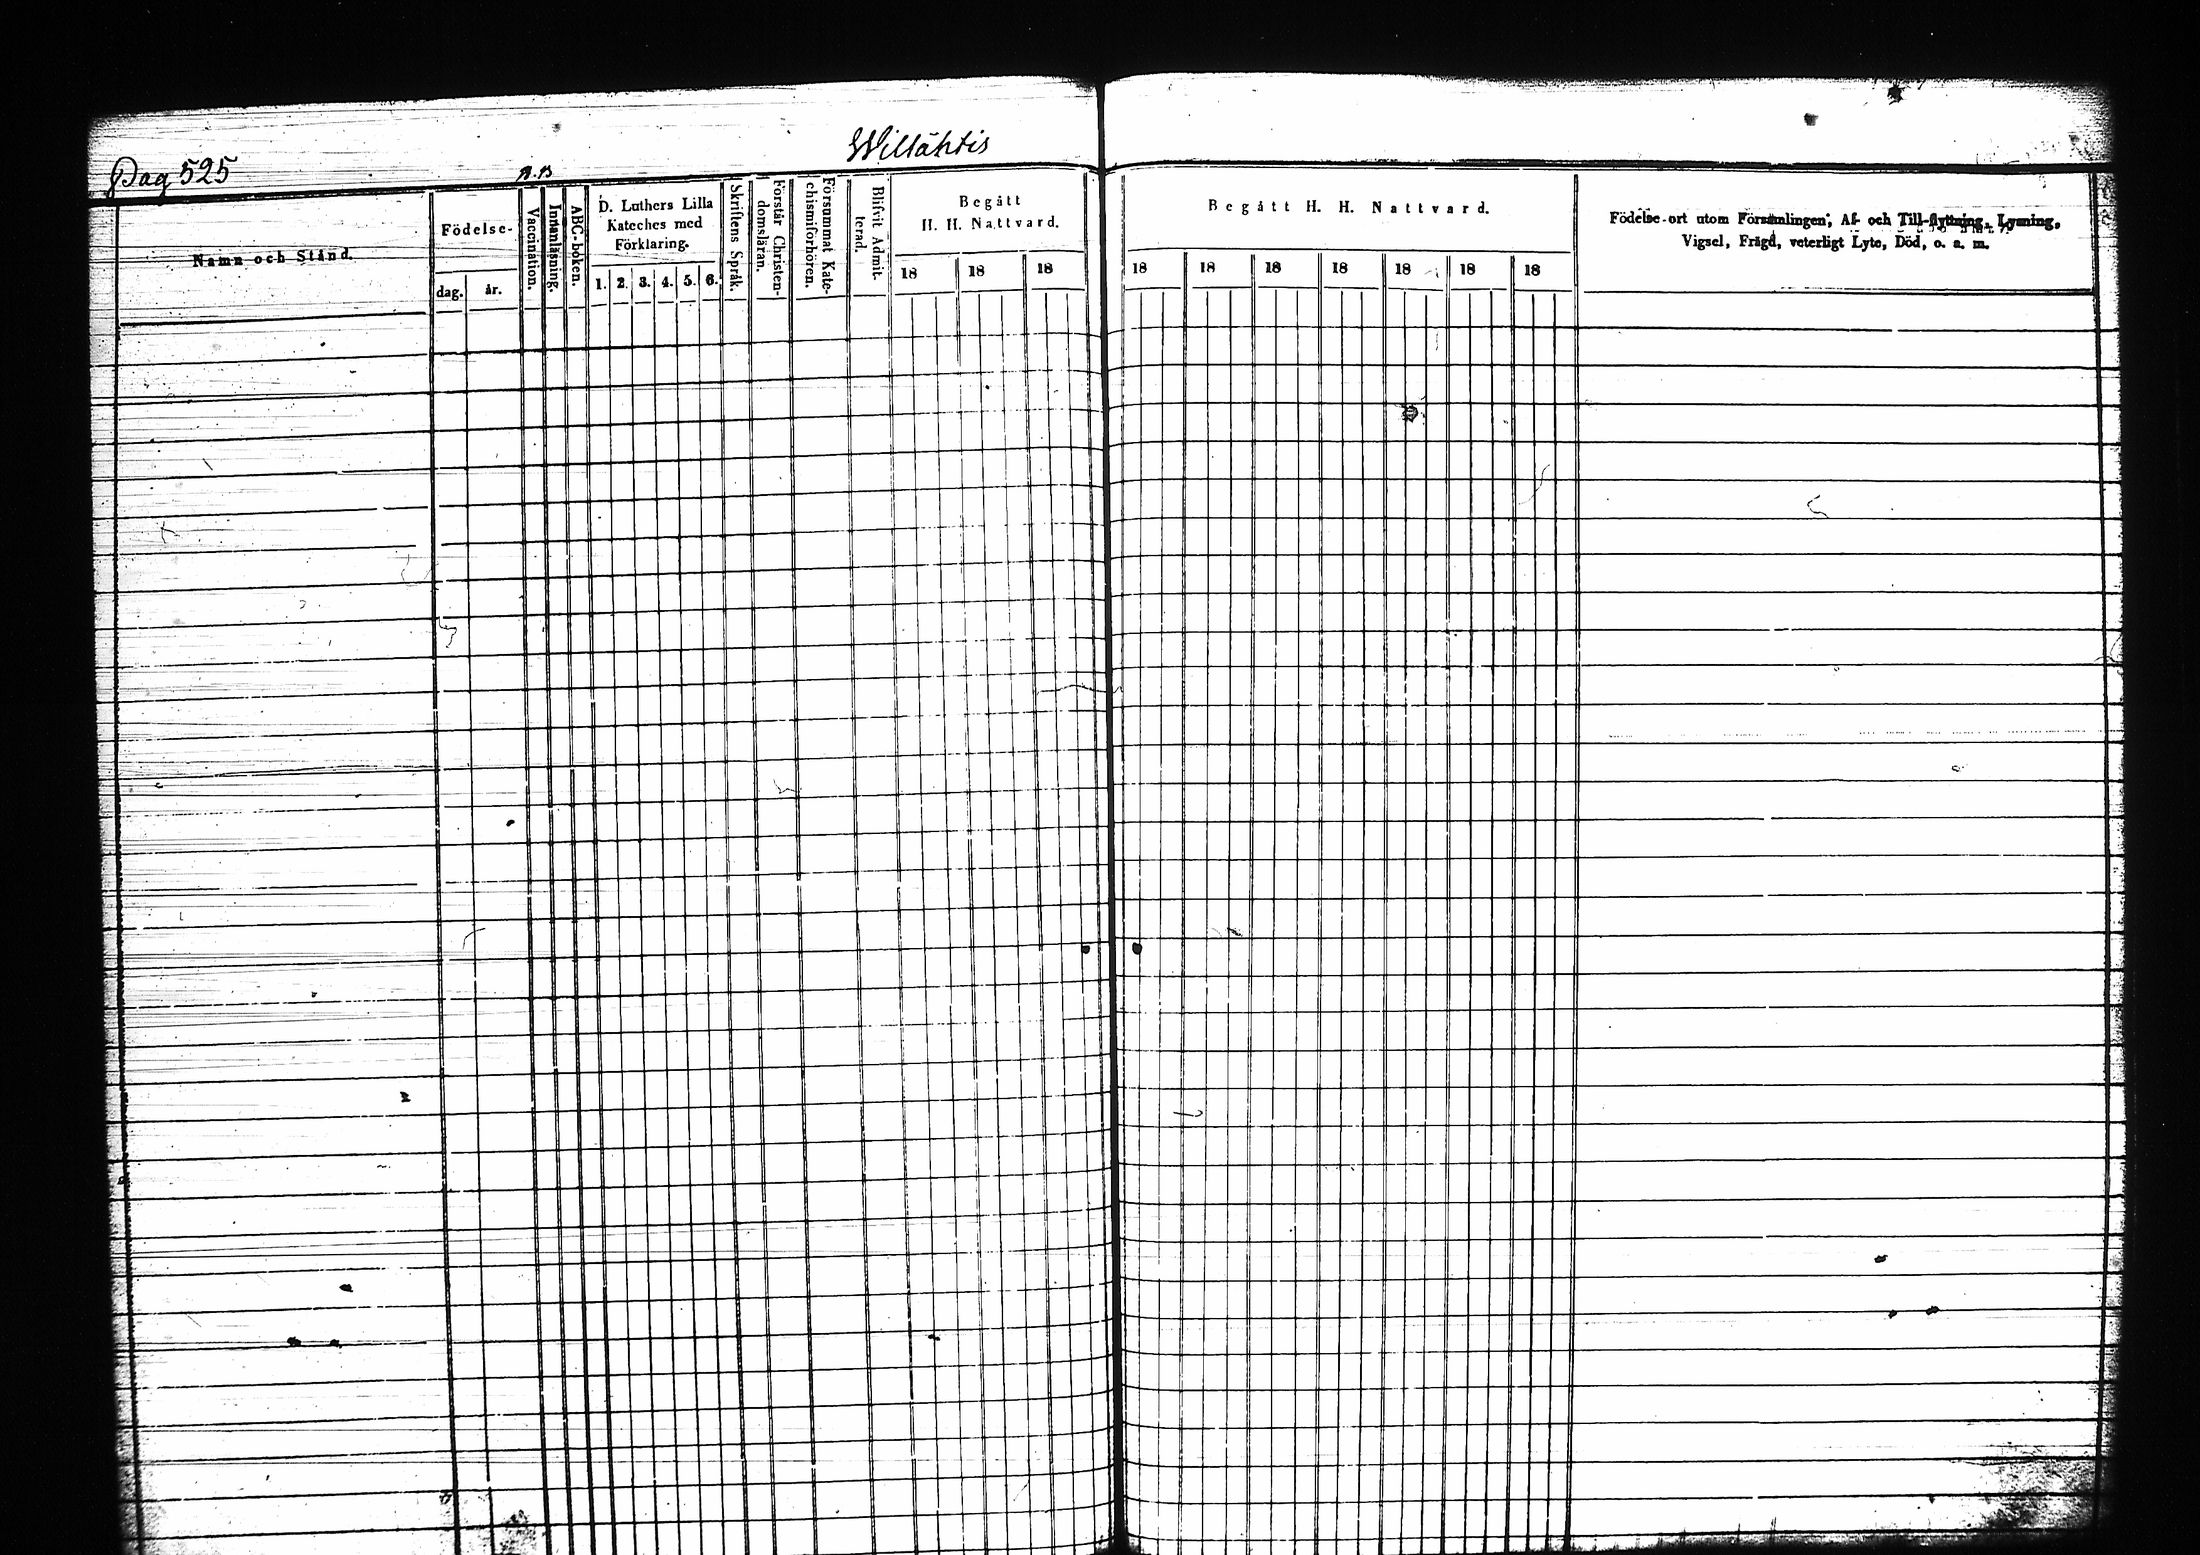 Willähtis
Pag 525
Namn och Stånd.
Födelse-
dag.
år.
Vaccination.
Innanläsning.
ABC-boken.
D. Luthers Lilla
Kateches med
Förklaring.
1. 2. 3. 4. 5. 6.
Skriftens Språk.
Förstår Christen-
domsläran.
Försummat Kate-
chismiförhören.
Blifvit Admit-
terad.
Begått
H. H. Nattvard.
18 18 18
Begått H. H. Nattvard.
18 18 18 18 18 18 18
Födelse-ort utom Församlingen, Af- och Till-flyttning, Lysning,
Vigsel, Frägd, veterligt Lyte, Död, o. s. m.